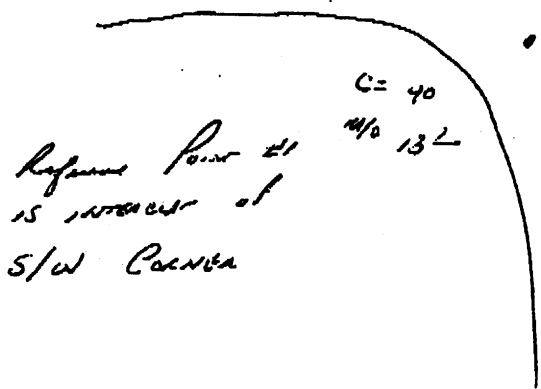 C= 40
M/O 13 L
Reference Point #1
is intercept of
S/W Corner